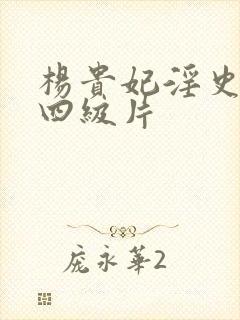 楊貴妃淫史
四級片
庞永華2